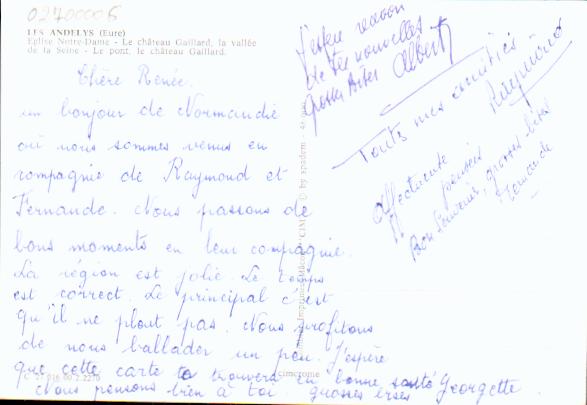 02700006
LES ANDELYS (Eure)
Eglise Notre-Dame - Le château Gaillard, la vallée
de la Seine - Le pont, le château Gaillard.
Chère Renée.
un bonjour de Normandie
où nous sommes venus en
compagnie de Raymond et
Fernande. Nous passons de
bons moments en leur compagnie.
La région est jolie. Le temps
est correct. Le principal c'est
qu'il ne pleut pas. Nous profitons
de nous ballader un peu. J'espère
que cette carte te trouvera en bonne santé
Nous pensons bien à toi. grosses bises Georgette
J'espère
de tes nouvelles
Grosses bises Albert
Toutes mes amitiés
Raymond
Affectueuses pensées
Bon souvenir, grosses bises
Fernande
cimcrome